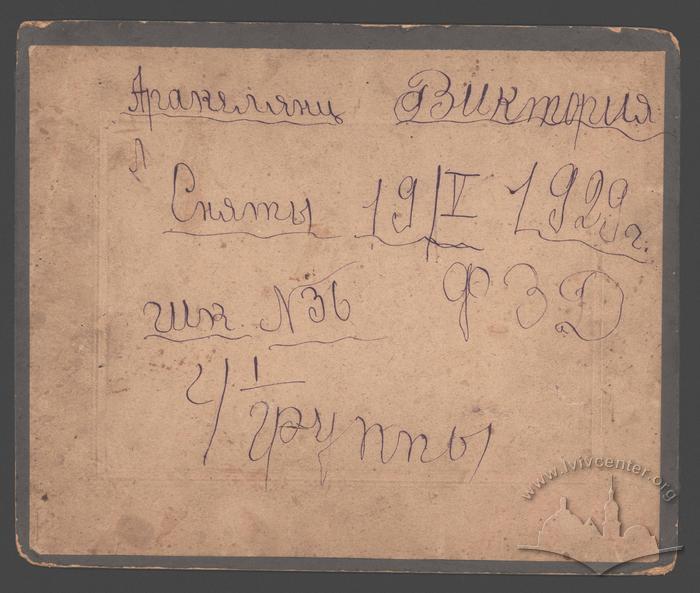 Аракелянц Виктория
Л
Сняты 19/V 1929 г.
шк. N 36 ФЗД
4 1 группы
www.lvivcenter.org